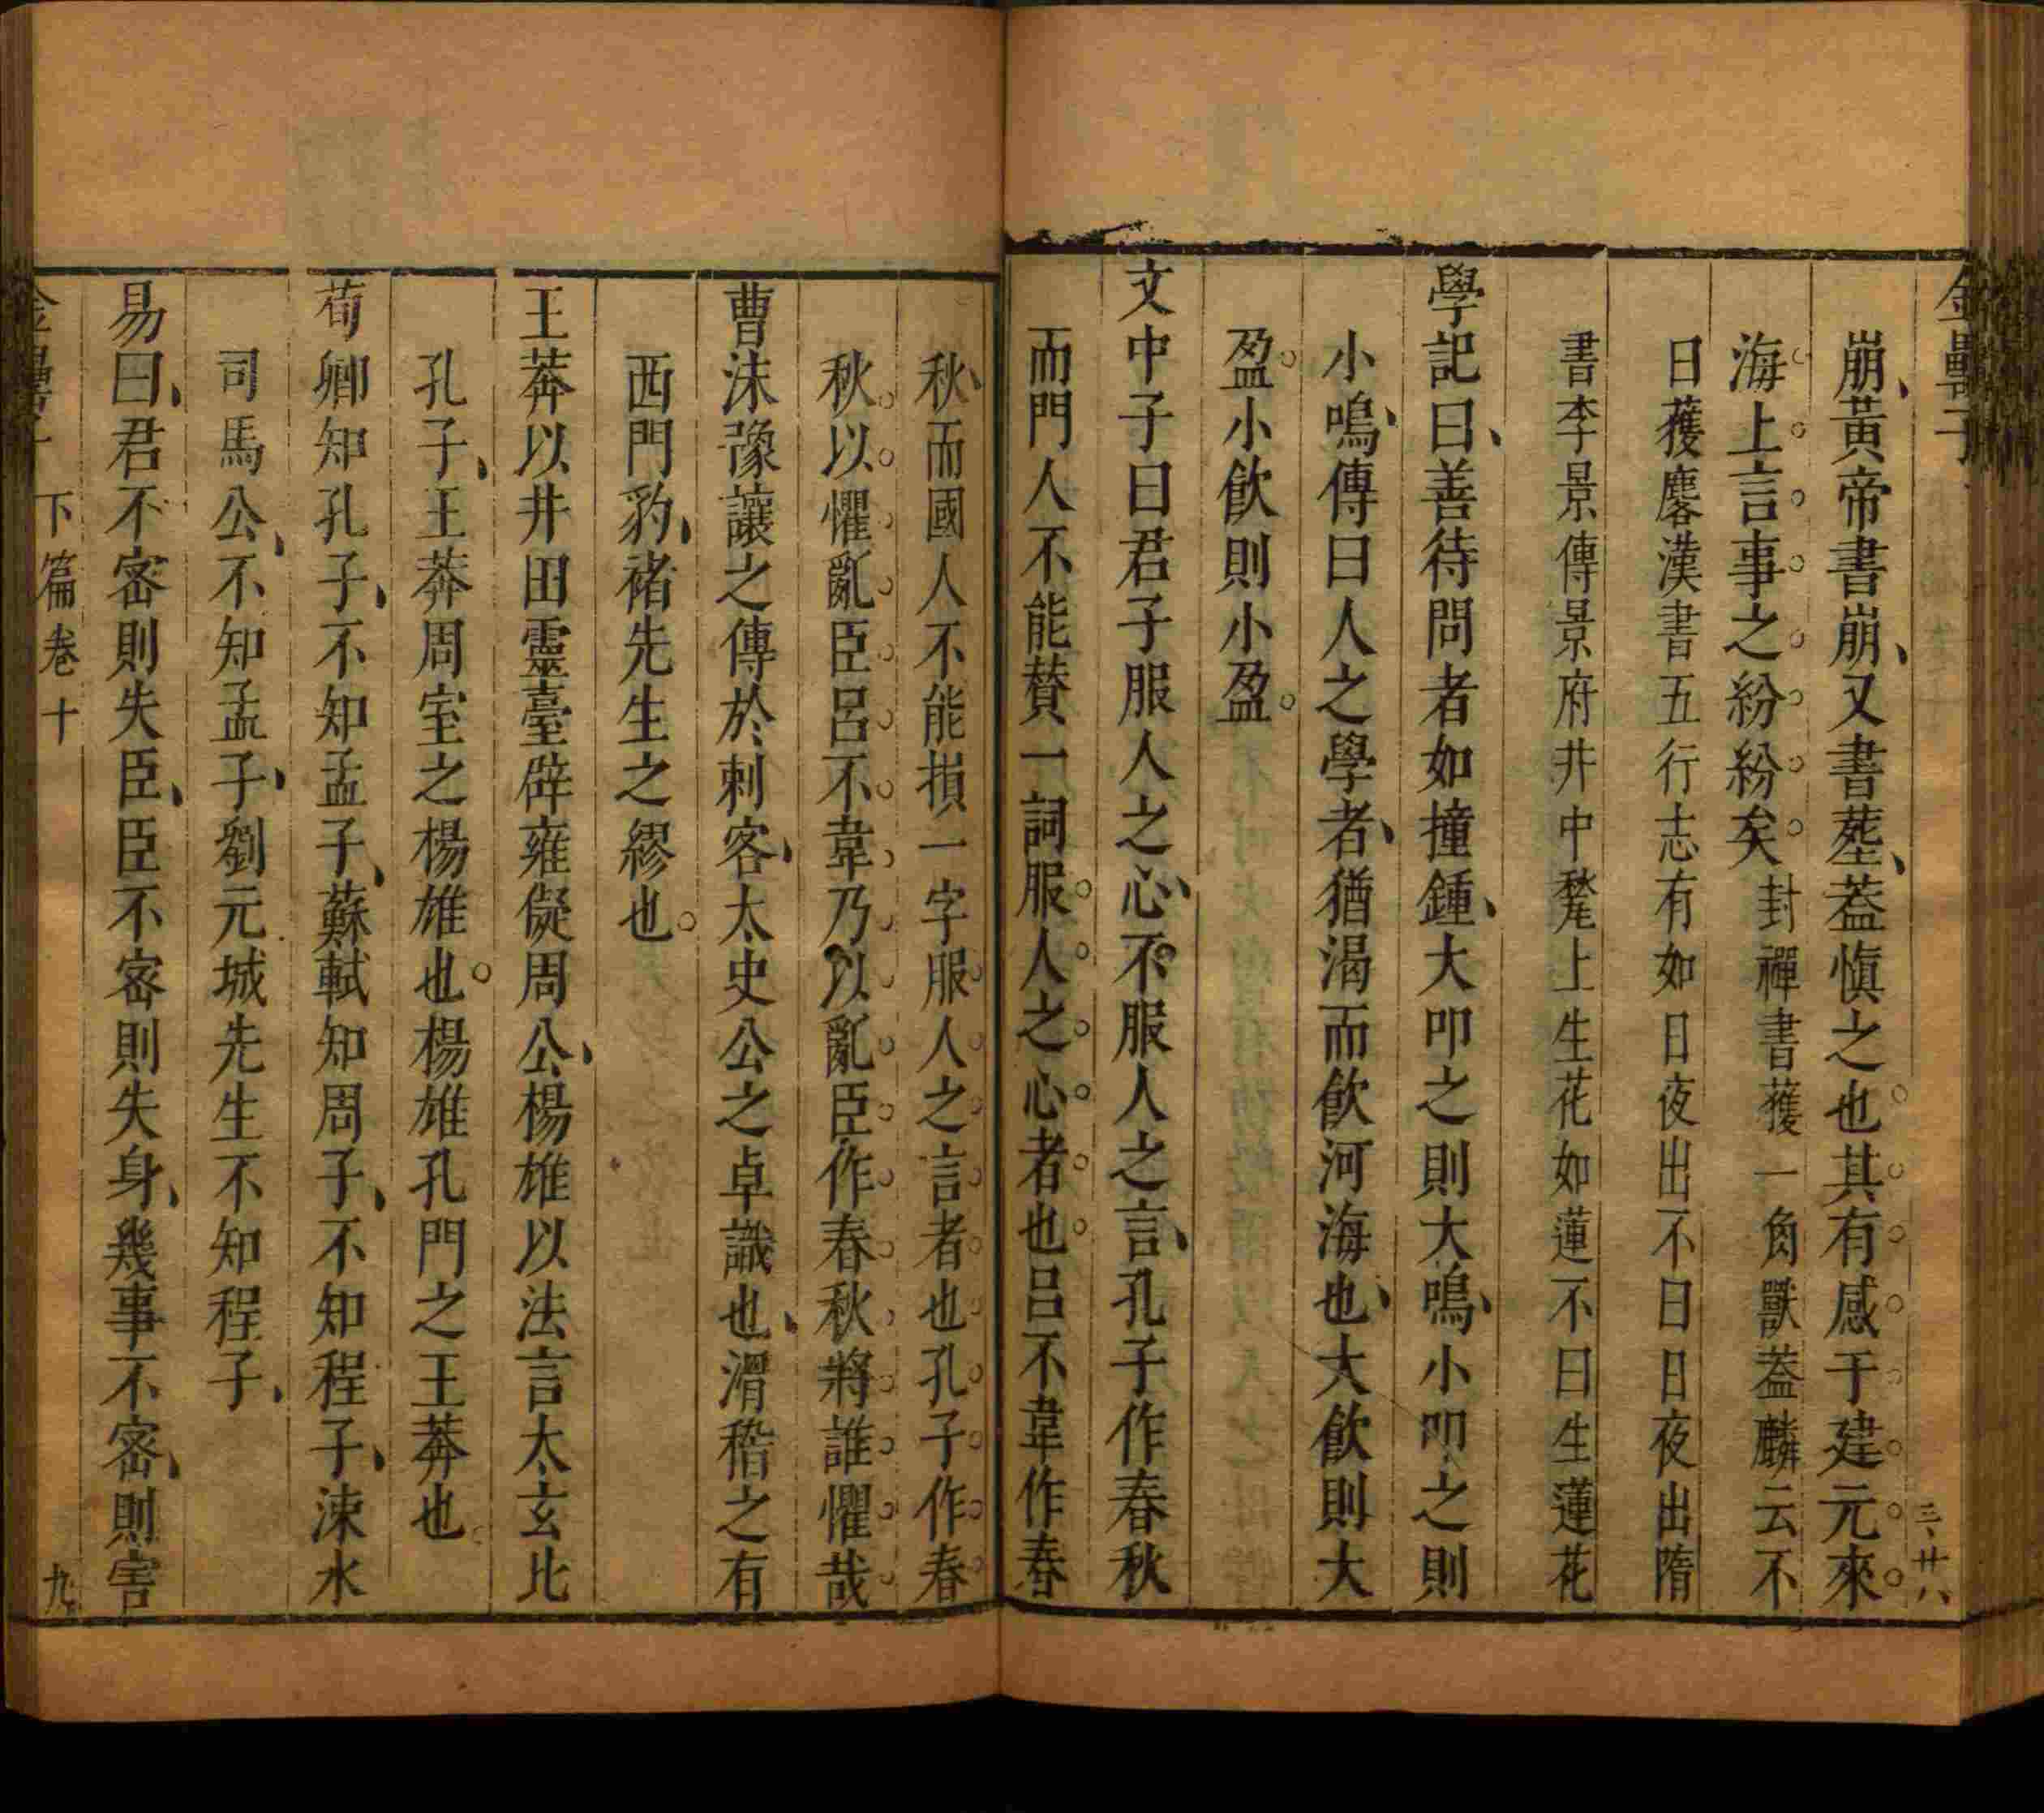 金罍子
三廿八
崩黃帝書崩又書塟葢慎之也其有感于建元來
海上言事之紛紛矣封禪書獲一角獸葢麟云不
日獲麐漢書五行志有如日夜出不日日夜出隋
書李景傳景府井中甃上生花如蓮不曰生蓮花
學記曰善待問者如撞鍾大叩之則大鳴小叩之則
小鳴傳曰人之學者猶渴而飲河海也大飲則大
盈小飲則小盈
文中子曰君子服人之心不服人之言孔子作春秋
而門人不能賛一詞服人之心者也呂不韋作春
秋而國人不能損一字服人之言者也孔子作春
秋以懼亂臣呂不韋乃以亂臣作春秋將誰懼哉
曹沫豫讓之傳於刺客太史公之卓識也滑稽之有
西門豹褚先生之繆也
王莽以井田靈臺辟雍儗周公楊雄以法言太玄比
孔子王莽周室之楊雄也楊雄孔門之王莽也
荀卿知孔子不知孟子蘇軾知周子不知程子涑水
司馬公不知孟子劉元城先生不知程子
易曰君不密則失臣臣不密則失身幾事不密則害
下篇卷十
九